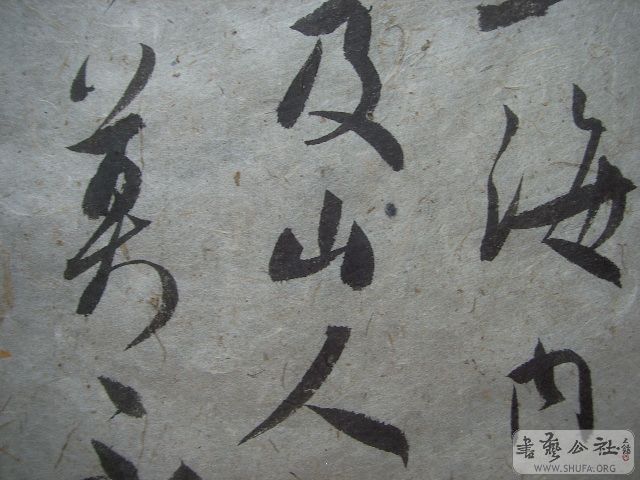 海内
及山人
萬
書藝公社
WWW.SHUFA.ORG